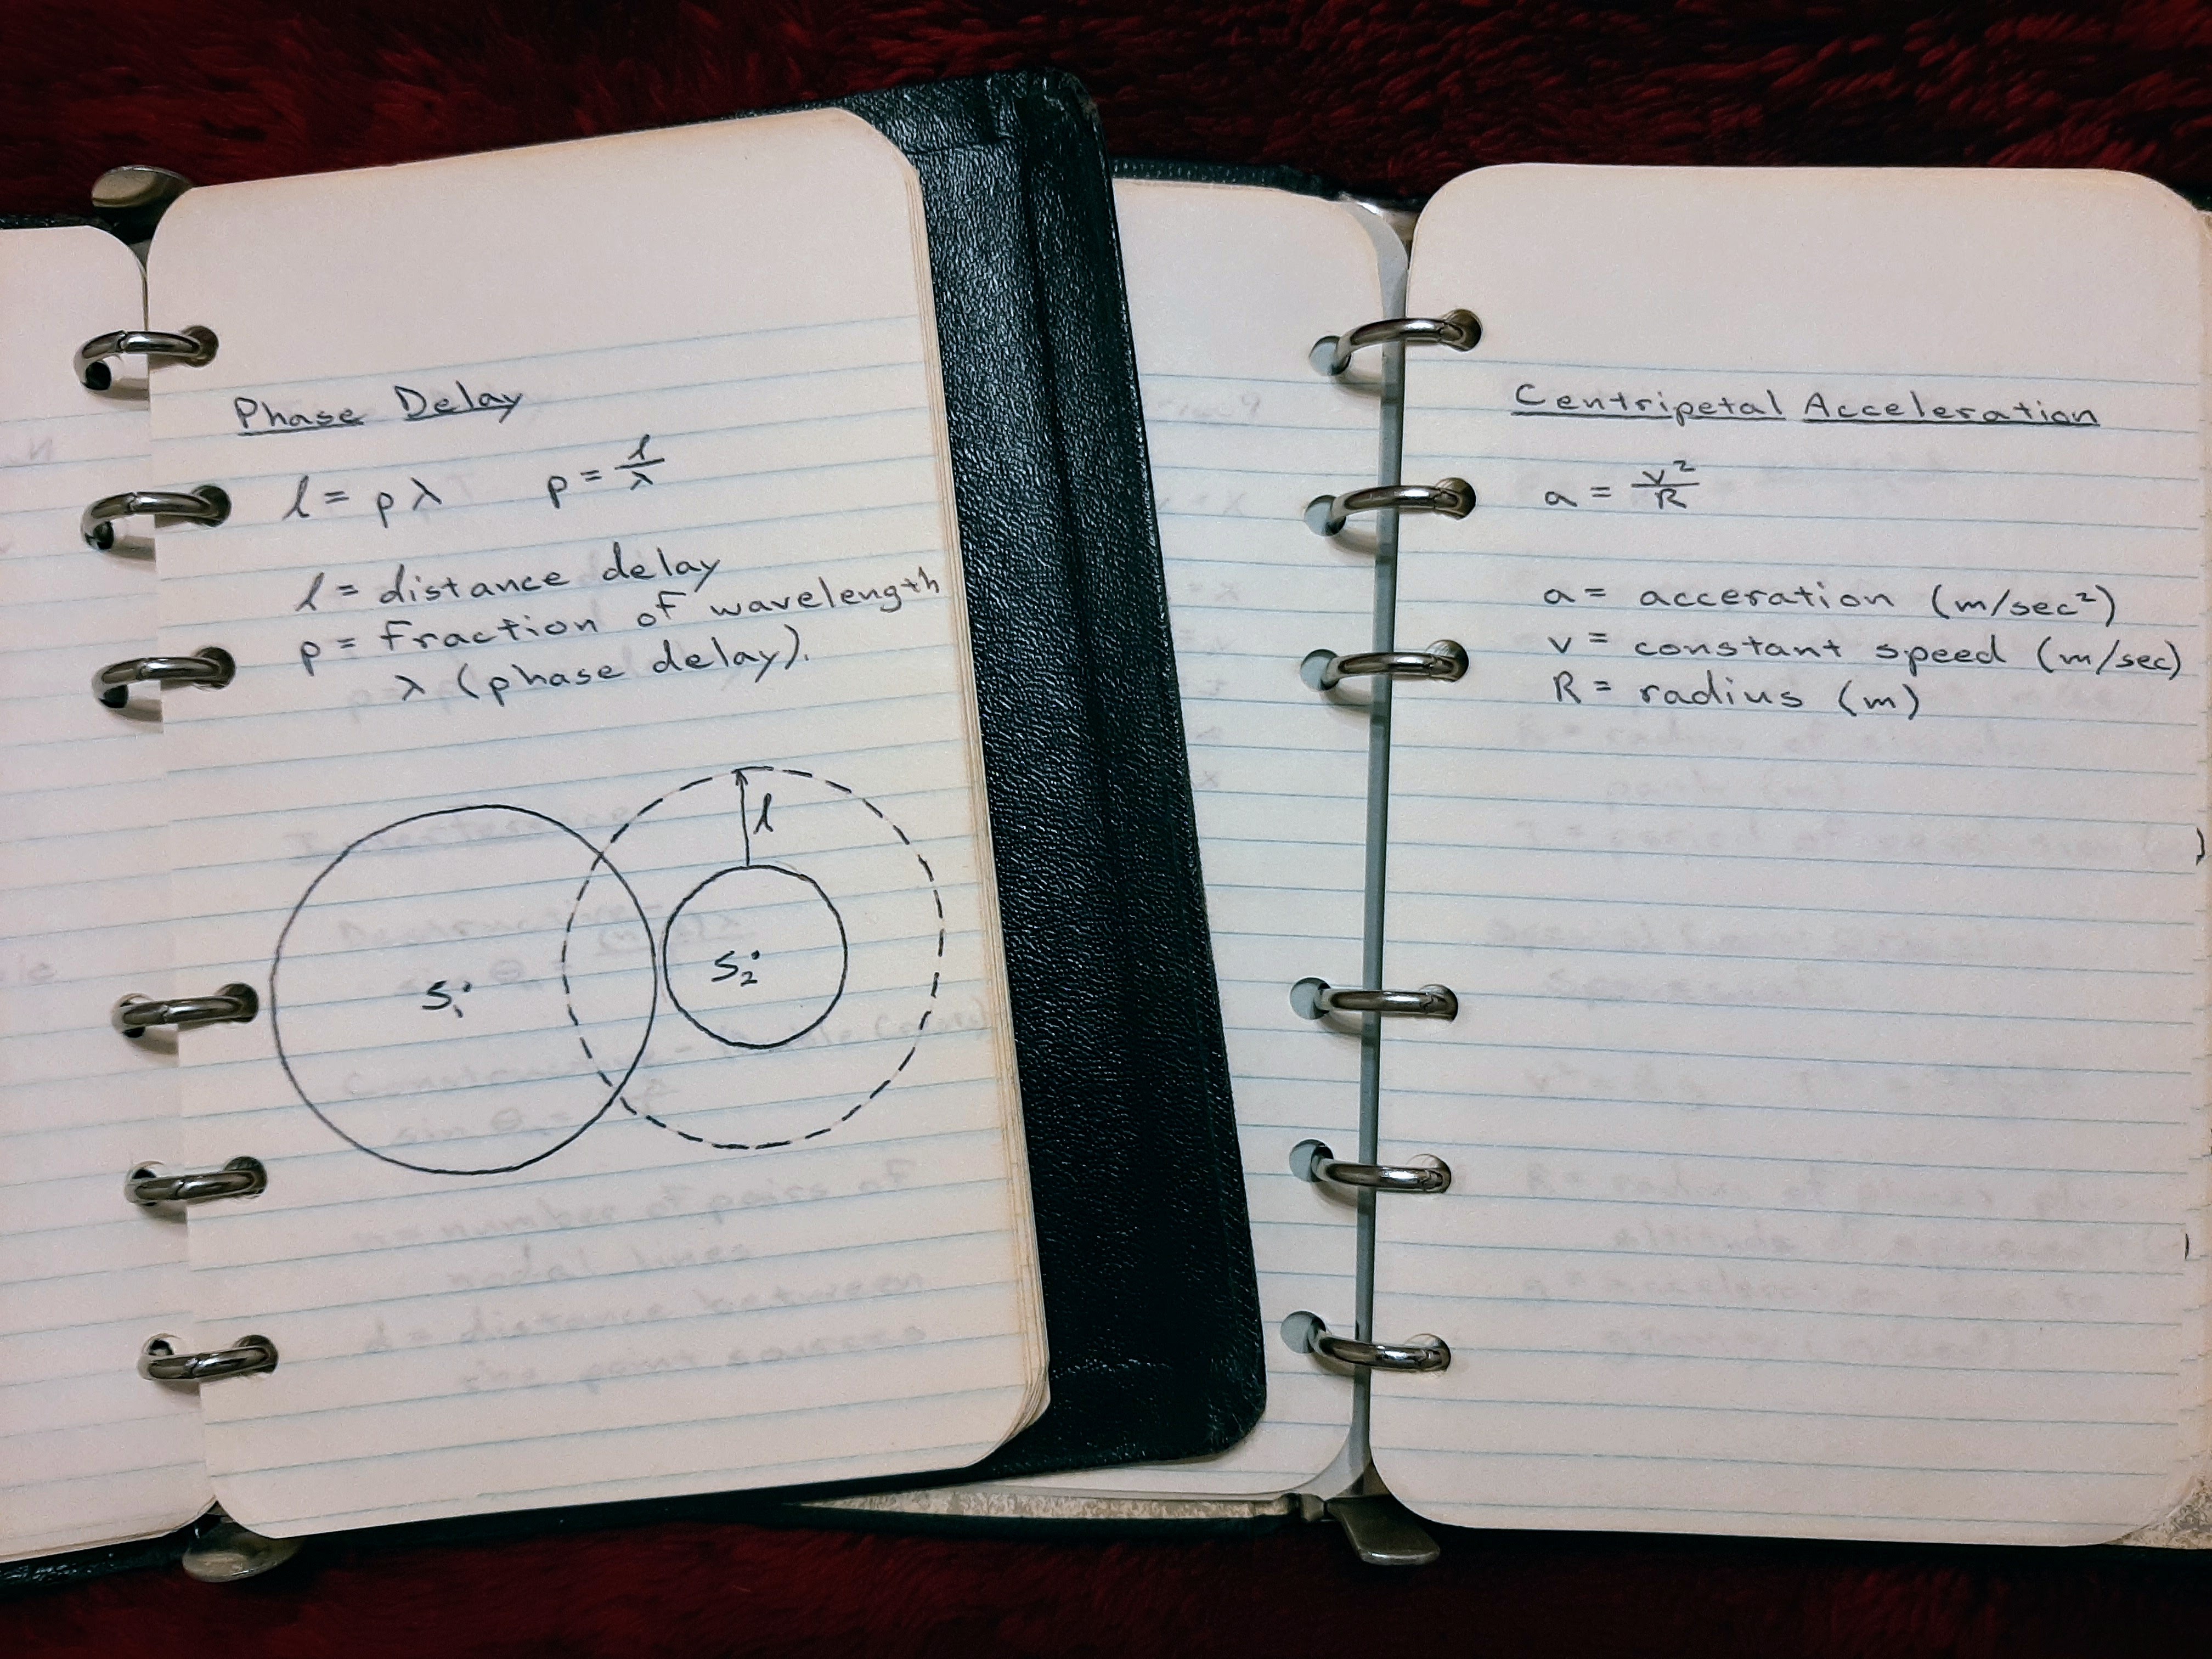 Phase Delay
l = pλ p = l/λ
l = distance delay
p = fraction of wavelength
λ (phase delay).
l
S₁
S₂
Centripetal Acceleration
a = v²/R
a = acceration (m/sec²)
v = constant speed (m/sec)
R = radius (m)